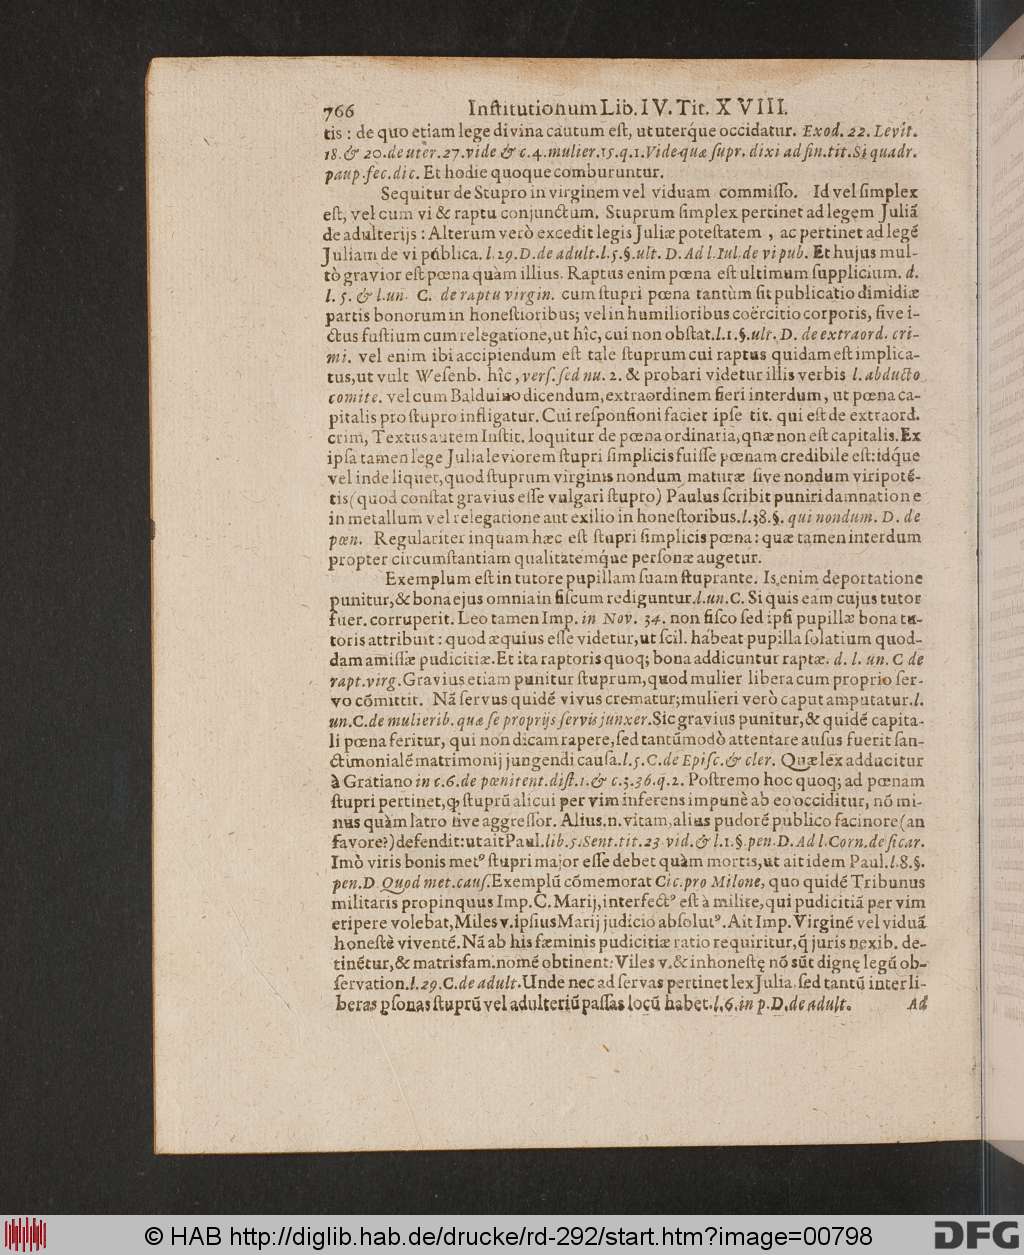 766 Institutionum Lib. IV. Tit. XVIII.
tis : de quo etiam lege divina cautum est, ut uterq́ue occidatur. Exod. 22. Levit.
18. & 20. de uter. 27. vide & c. 4. mulier. 15. q. 1. Vide quæ supr. dixi ad fin. tit. Si quadr.
paup. fec. dic. Et hodie quoque comburuntur.
Sequitur de Stupro in virginem vel viduam commisso. Id vel simplex
est, vel cum vi & raptu conjunctum. Stuprum simplex pertinet ad legem Juliā
de adulterijs : Alterum verò excedit legis Juliæ potestatem, ac pertinet ad legē
Juliam de vi publica. l. 29. D. de adult. l. 5. §. ult. D. Ad l. Iul. de vi pub. Et hujus mul-
tò gravior est pœna quàm illius. Raptus enim pœna est ultimum supplicium. d.
l. 5. & l. un. C. de raptu virgin. cum stupri pœna tantùm sit publicatio dimidiæ
partis bonorum in honestioribus; vel in humilioribus coërcitio corporis, sive i-
ctus fustium cum relegatione, ut hîc, cui non obstat. l. 1. §. ult. D. de extraord. cri-
mi. vel enim ibi accipiendum est tale stuprum cui raptus quidam est implica-
tus, ut vult Wesenb. hîc, vers. sed nu. 2. & probari videtur illis verbis l. abducto
comite. vel cum Balduino dicendum, extraordinem fieri interdum, ut pœna ca-
pitalis pro stupro infligatur. Cui responsioni faciet ipse tit. qui est de extraord.
crim, Textus autem Instit. loquitur de pœna ordinaria, quæ non est capitalis. Ex
ipsa tamen lege Julia leviorem stupri simplicis fuisse pœnam credibile est: idq́ue
vel inde liquet, quod stuprum virginis nondum maturæ sive nondum viripotē-
tis (quod constat gravius esse vulgari stupro) Paulus scribit puniri damnatione
in metallum vel relegatione aut exilio in honestoribus. l. 38. §. qui nondum. D. de
pœn. Regulariter inquam hæc est stupri simplicis pœna: quæ tamen interdum
propter circumstantiam qualitatemq́ue personæ augetur.
Exemplum est in tutore pupillam suam stuprante. Is enim deportatione
punitur, & bona ejus omnia in fiscum rediguntur. l. un. C. Si quis eam cujus tutor
fuer. corruperit. Leo tamen Imp. in Nov. 34. non fisco sed ipsi pupillæ bona tu-
toris attribuit : quod æquius esse videtur, ut scil. habeat pupilla solatium quod-
dam amissæ pudicitiæ. Et ita raptoris quoq; bona addicuntur raptæ. d. l. un. C de
rapt. virg. Gravius etiam punitur stuprum, quod mulier libera cum proprio ser-
vo cōmittit. Nā servus quidē vivus crematur; mulieri verò caput amputatur. l.
un. C. de mulierib. quæ se proprijs servis junxer. Sic gravius punitur, & quidē capita-
li pœna feritur, qui non dicam rapere, sed tantūmodò attentare ausus fuerit san-
ctimonialē matrimonij jungendi causa. l. 5. C. de Episc. & cler. Quæ lex adducitur
à Gratiano in c. 6. de pœnitent. dist. 1. & c. 5. 36. q. 2. Postremo hoc quoq; ad pœnam
stupri pertinet, ꝙ stuprū alicui per vim inferens impunè ab eo occiditur, nō mi-
nus quàm latro sive aggressor. Alius. n. vitam, alius pudorē publico facinore (an
favore?) defendit: ut ait Paul. lib. 5. Sent. tit. 23 vid. & l. 1. §. pen. D. Ad l. Corn. de sicar.
Imò viris bonis metꝰ stupri major esse debet quàm mortis, ut ait idem Paul. l. 8. §.
pen. D Quod met. caus. Exemplū cōmemorat Cic. pro Milone, quo quidē Tribunus
militaris propinquus Imp. C. Marij, interfectꝰ est à milite, qui pudicitiā per vim
eripere volebat, Miles v. ipsius Marij judicio absolutꝰ. Ait Imp. Virginē vel viduā
honestè viventē. Nā ab his fæminis pudicitiæ ratio requiritur, q̄ juris nexib. de-
tinētur, & matrisfam. nomē obtinent: Viles v. & inhonestę nō sūt dignę legū ob-
servation. l. 29. C. de adult. Unde nec ad servas pertinet lex Julia. sed tantū inter li-
beras ꝑsonas stuprū vel adulteriū passas locū habet. l. 6. in p. D. de adult.
Ad
© HAB http://diglib.hab.de/drucke/rd-292/start.htm?image=00798
DFG